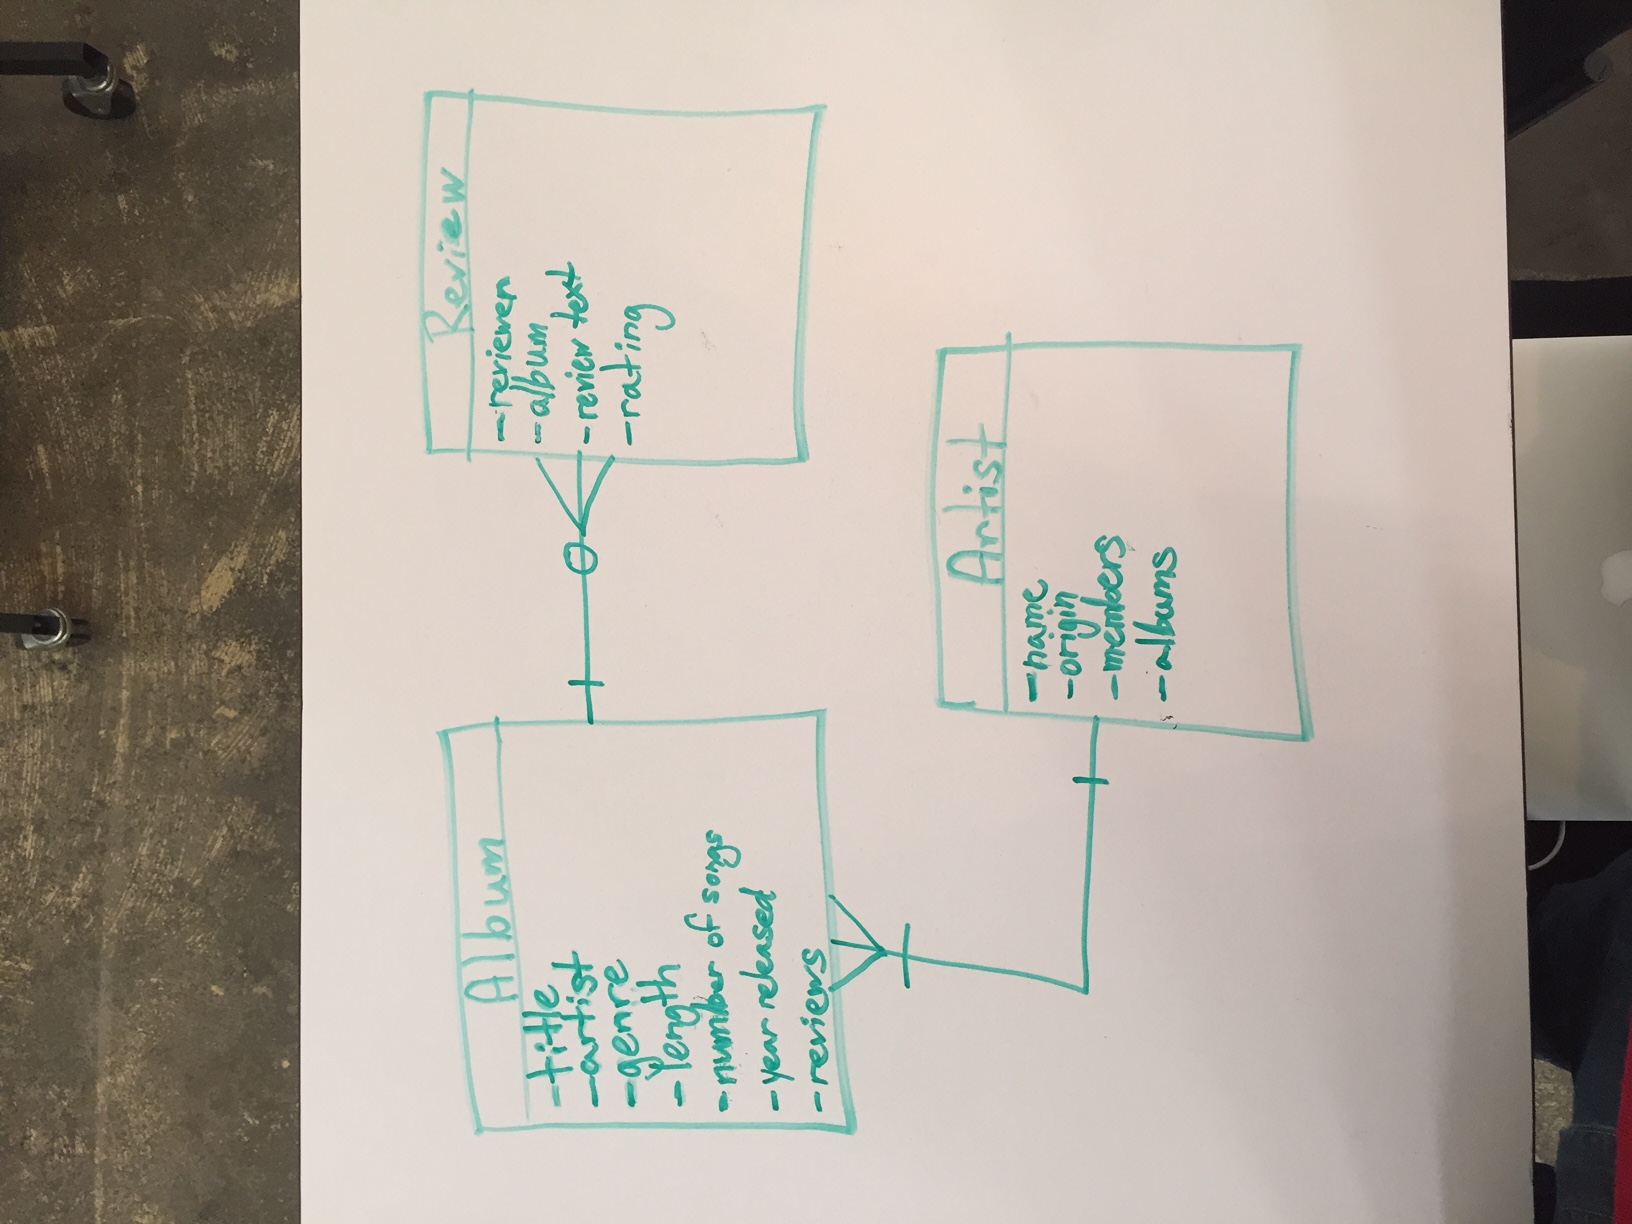 Album
-title
-artist
-genre
-length
-number of songs
-year released
-reviews
Review
-reviewer
-album
-review text
-rating
Artist
-name
-origin
-members
-albums